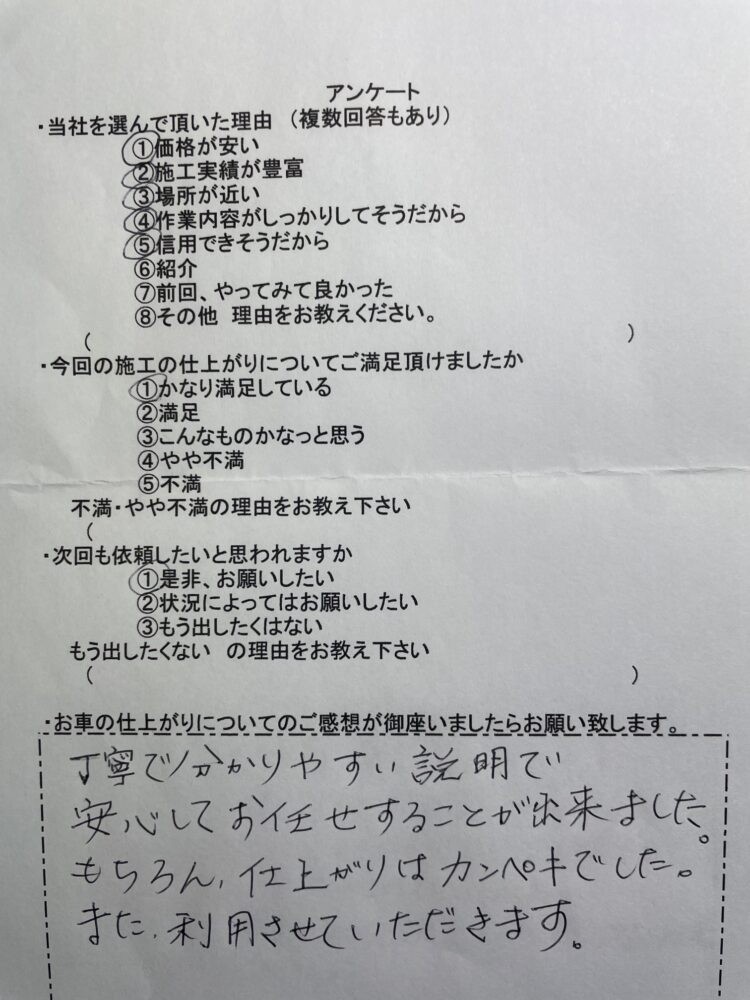 アンケート
・当社を選んで頂いた理由　（複数回答もあり）
①価格が安い
②施工実績が豊富
③場所が近い
④作業内容がしっかりしてそうだから
⑤信用できそうだから
⑥紹介
⑦前回、やってみて良かった
⑧その他　理由をお教えください。
（　　　　　　　　　　　　　　　　　　　　　　　）
・今回の施工の仕上がりについてご満足頂けましたか
①かなり満足している
②満足
③こんなものかなっと思う
④やや不満
⑤不満
不満・やや不満の理由をお教え下さい
（
・次回も依頼したいと思われますか
①是非、お願いしたい
②状況によってはお願いしたい
③もう出したくはない
もう出したくない　の理由をお教え下さい
（　　　　　　　　　　　　　　　　　　　　　　　）
・お車の仕上がりについてのご感想が御座いましたらお願い致します。
丁寧で分かりやすい説明で
安心してお任せすることが出来ました。
もちろん、仕上がりはカンペキでした。
また、利用させていただきます。